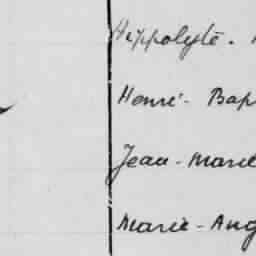 Hippolyte.
Henri- Bap
Jean-Marie
Marie-Aug